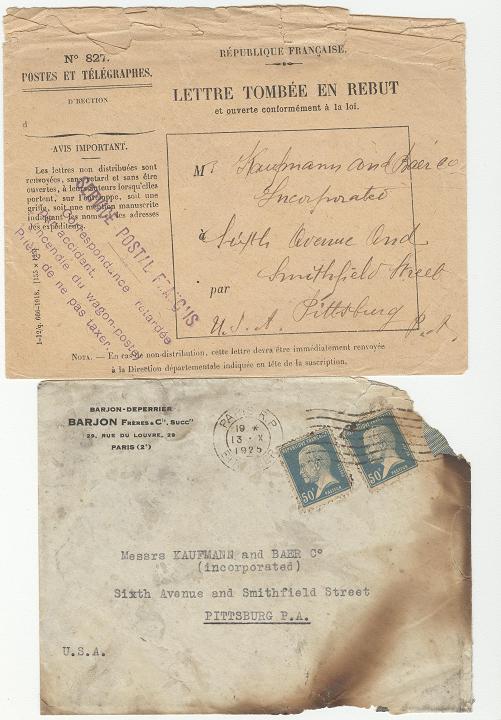 N° 827.
POSTES ET TÉLÉGRAPHES.
D'RECTION
d
AVIS IMPORTANT.
Les lettres non distribuées sont
renvoyées, sans retard et sans être
ouvertes, à leurs auteurs lorsqu'elles
portent, sur l'enveloppe, soit une
griffe, soit une mention manuscrite
indiquant les noms et les adresses
des expéditeurs.
1-12/q. 666-1918. [155 × 120]
RÉPUBLIQUE FRANÇAISE.
LETTRE TOMBÉE EN REBUT
et ouverte conformément à la loi.
M. Kaufmann and Baer Co
Incorporated
à Sixth Avenue and
Smithfield Street
par Pittsburg
U.S.A. P.A.
SERVICE POSTAL FRANÇAIS
Correspondance retardée
accident.
Incendie du wagon-postal
Prière de ne pas taxer.
NOTA. — En cas de non-distribution, cette lettre devra être immédiatement renvoyée
à la Direction départementale indiquée en tête de la suscription.
BARJON-DEPERRIER
BARJON FRÈRES & Cie, Succrs
29, RUE DU LOUVRE, 29
PARIS (2e)
PARIS R.P.
19 *
13 - X
1925
RÉPUBLIQUE FRANÇAISE
50c
PASTEUR
RÉPUBLIQUE FRANÇAISE
50c
PASTEUR
Messrs KAUFMANN and BAER C°
(incorporated)
Sixth Avenue and Smithfield Street
PITTSBURG P.A.
U.S.A.